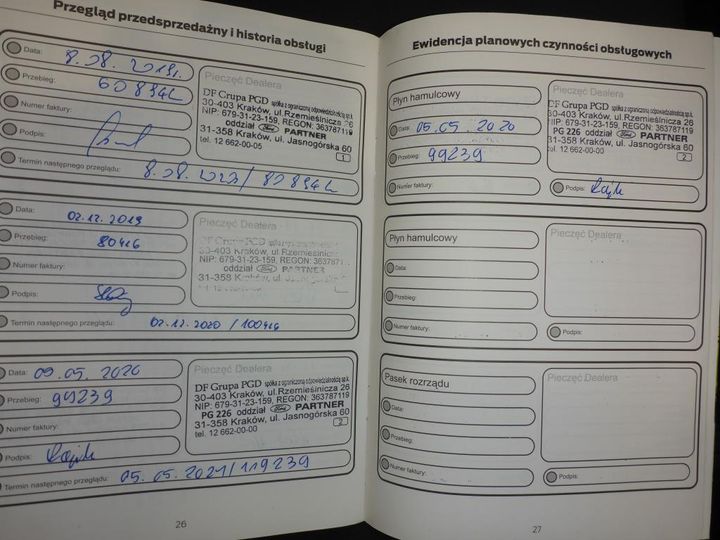 Przegląd przedsprzedażny i historia obsługi
Data: 8.08.2019r.
Przebieg: 60894L
Numer faktury:
Podpis:
Termin następnego przeglądu: 8.08. / 80894L
Pieczęć Dealera
DF Grupa PGD spółka z ograniczoną odpowiedzialnością sp.k.
30-403 Kraków, ul.Rzemieślnicza 26
NIP: 679-31-23-159, REGON: 363787119
PG 226 oddział Ford PARTNER
31-358 Kraków, ul. Jasnogórska 60
tel. 12 662-00-05
1
Data: 02.12.2019
Przebieg: 80416
Numer faktury:
Podpis:
Termin następnego przeglądu: 02.12.2020 / 100416
Pieczęć Dealera
DF Grupa PGD
30-403 Kraków, ul. Rzemieślnicz
NIP: 679-31-23-159, REGON: 363787
oddział Ford PARTNER
31-358 Kraków, ul. Jasnogórska
Data: 05.05.2020
Przebieg: 99239
Numer faktury:
Podpis:
Termin następnego przeglądu: 05.05.2021/119239
Pieczęć Dealera
DF Grupa PGD spółka z ograniczoną odpowiedzialnością sp.k.
30-403 Kraków, ul.Rzemieślnicza 26
NIP: 679-31-23-159, REGON: 363787119
PG 226 oddział Ford PARTNER
31-358 Kraków, ul. Jasnogórska 60
tel. 12 662-00-05
2
26
Ewidencja planowych czynności obsługowych
Płyn hamulcowy
Data: 05.05.2020
Przebieg: 99239
Numer faktury:
Pieczęć Dealera
DF Grupa PGD spółka z ograniczoną odpowiedzialnością sp.k.
30-403 Kraków, ul.Rzemieślnicza 26
NIP: 679-31-23-159, REGON: 363787119
PG 226 oddział Ford PARTNER
31-358 Kraków, ul. Jasnogórska 60
tel. 12 662-00-05
2
Podpis:
Płyn hamulcowy
Data:
Przebieg:
Numer faktury:
Pieczęć Dealera
Podpis:
Pasek rozrządu
Data:
Przebieg:
Numer faktury:
Pieczęć Dealera
Podpis:
27